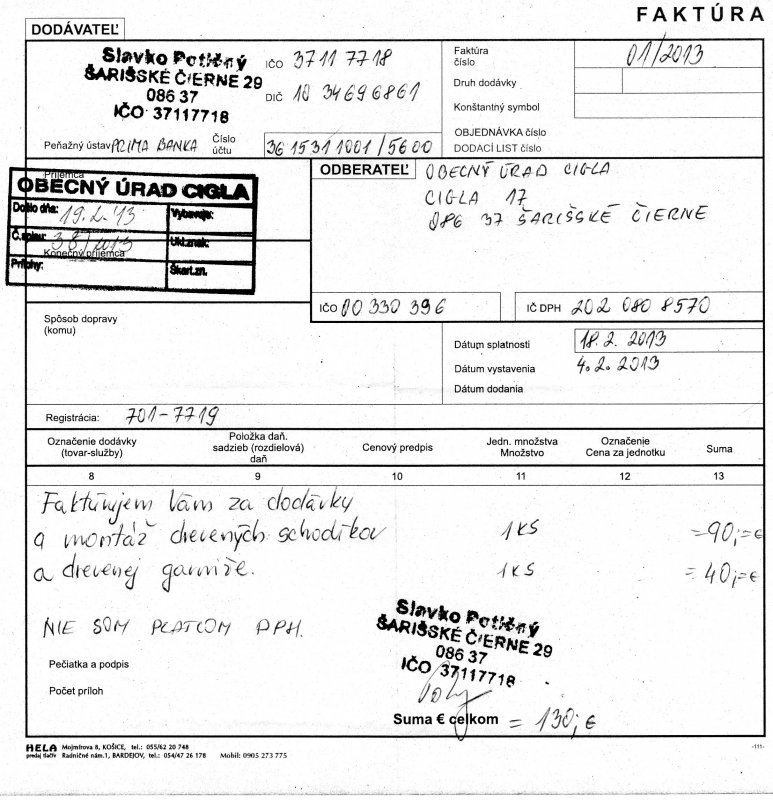 FAKTÚRA
DODÁVATEĽ
Slavko Potičný
ŠARIŠSKÉ ČIERNE 29
086 37
IČO 37117718
IČO 3711 7718
DIČ 10 34696861
Peňažný ústav PRIMA BANKA Číslo účtu 3615311001/5600
Faktúra číslo 01/2013
Druh dodávky
Konštantný symbol
OBJEDNÁVKA číslo
DODACÍ LIST číslo
Príjemca
OBECNÝ ÚRAD CIGLA
Došlo dňa: 19.2.'13 Vybavuje:
Č.spisu: 38/2013 Ukl.znak:
Prílohy: Skart.zn.
Konečný príjemca
ODBERATEĽ OBECNÝ ÚRAD CIGLA
CIGLA 17
086 37 ŠARIŠSKÉ ČIERNE
IČO 00 330 396
IČ DPH 202 080 8570
Spôsob dopravy
(komu)
Dátum splatnosti 18.2.2013
Dátum vystavenia 4.2.2013
Dátum dodania
Registrácia: 701-7719
Označenie dodávky (tovar-služby) Položka daň. sadzieb (rozdielová) daň Cenový predpis Jedn. množstva Množstvo Označenie Cena za jednotku Suma
8 9 10 11 12 13
Faktúrujem Vám za dodávky
a montáž drevených schodíkov 1KS =90,=€
a drevenej garniže. 1KS =40,=€
NIE SOM PLATCOM DPH.
Slavko Potičný
ŠARIŠSKÉ ČIERNE 29
086 37
IČO 37117718
Pečiatka a podpis
Počet príloh
Suma € celkom = 130,€
HELA Mojmírova 8, KOŠICE, tel.: 055/62 20 748
predaj tlačív Radničné nám.1, BARDEJOV, tel.: 054/47 26 178 Mobil: 0905 273 775
-111-